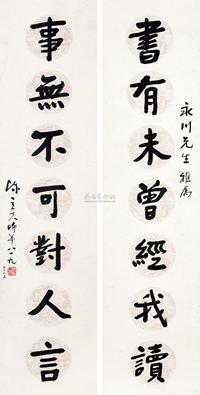 永川先生雅属
書有未曾經我讀
事無不可對人言
陳立夫時年八十九